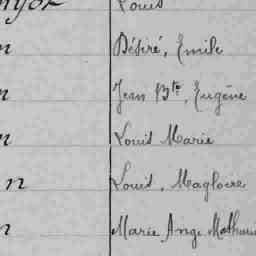 Louis
n Désiré, Emile
n Jean Bte, Eugène
n Louis Marie
n Louis, Magloire
n Marie Ange Mathurin